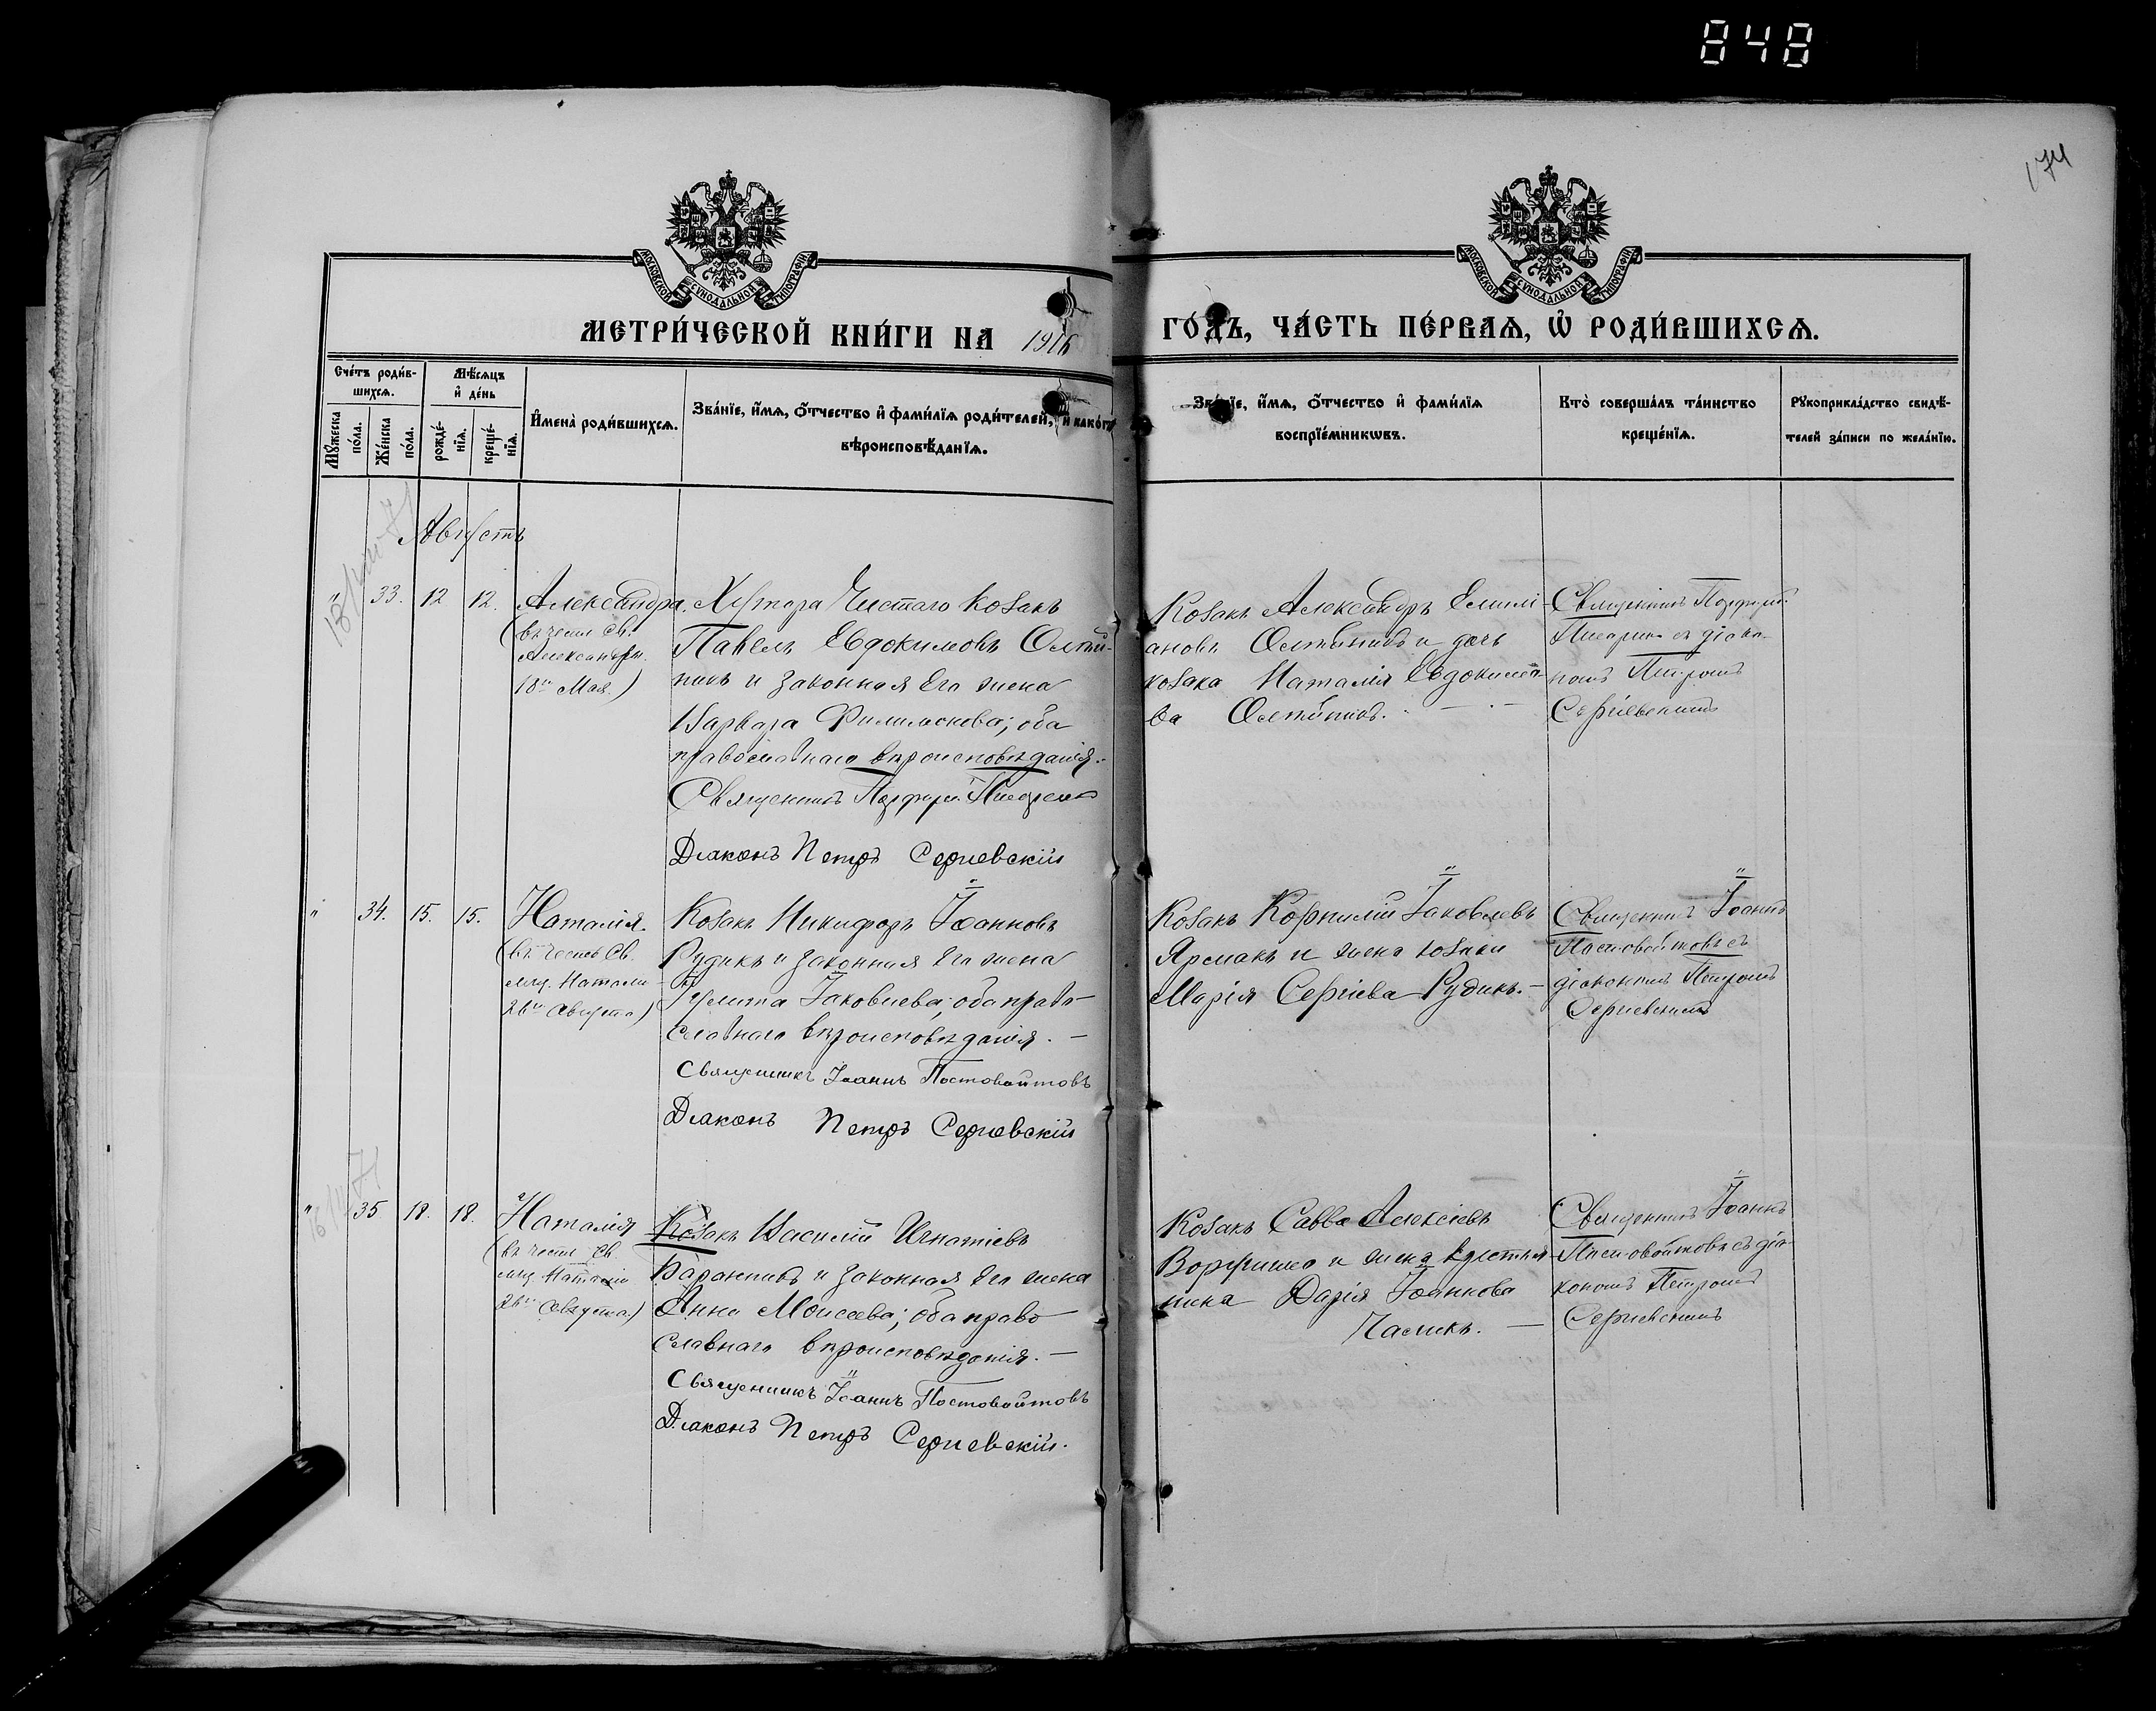 848
174
МОСКОВСКОЙ СУНОДАЛЬНОЙ ТИПОГРАФІИ
МОСКОВСКОЙ СУНОДАЛЬНОЙ ТИПОГРАФІИ
МЕТРИ́ЧЕСКОЙ КНИ́ГИ НА 1916
ГО́ДЪ, ЧА́СТЬ ПЕ́РВАЯ, Ѡ҆ РОДИ́ВШИХСЯ.
Сче́тъ роди́в-
шихся.
Мꙋ́жеска
по́ла.
Же́нска
по́ла.
Мѣ́сяцъ
и҆ де́нь
рожде́-
нїя.
креще́-
нїя.
И҆мена̀ роди́вшихся.
Зва́нїе, и҆́мя, ѻ҆́тчество и҆ фами́лїя роди́телей, и҆ како́гѡ
вѣроисповѣ́данїя.
Зва́нїе, и҆́мя, ѻ҆́тчество и҆ фами́лїя
воспрїе́мникѡвъ.
Кто̀ соверша́лъ та́инство
креще́нїя.
Рꙋкоприкла́дство свидѣ́-
телей за́писи по жела́нїю.
Августъ
" 33. 12 12.
Александра.
(въ честь св.
Александры
18го Мая.)
Хутора Чистаго козакъ
Павелъ Евдокимовъ
и законная его жена
Варвара Филимонова; оба
православнаго вѣроисповѣданія.
Священникъ Порфирій
Діаконъ Петръ Сергіевскій
Козакъ Александръ Емилі-
ановъ и дочь
козака Наталія Евдокимо-
ва
Священникъ Порфирій
съ діако-
номъ Петромъ
Сергіевскимъ
" 34. 15. 15.
Наталія.
(въ честь св.
мц. Наталіи
26го Августа)
Козакъ Никифоръ Іоанновъ
Рудикъ и законная его жена
Іулита Іаковлева; оба право-
славнаго вѣроисповѣданія. —
Священникъ Іоаннъ Постовойтовъ
Діаконъ Петръ Сергіевскій
Козакъ Корнилій Іаковлевъ
Ярмакъ и жена козака
Марія Сергіева Рудикъ. —
Священникъ Іоаннъ
Постовойтовъ съ
діакономъ Петромъ
Сергіевскимъ
" 35 18. 18.
Наталія
(въ честь св.
мц. Наталіи
26го Августа.)
Козакъ Василій Игнатіевъ
и законная его жена
Анна Моисеева; оба право-
славнаго вѣроисповѣданія. —
Священникъ Іоаннъ Постовойтовъ
Діаконъ Петръ Сергіевскій.
Козакъ Савва Алексіевъ
и жена крестья-
нина Дарія Іоаннова
Священникъ Іоаннъ
Постовойтовъ съ діа-
кономъ Петромъ
Сергіевскимъ